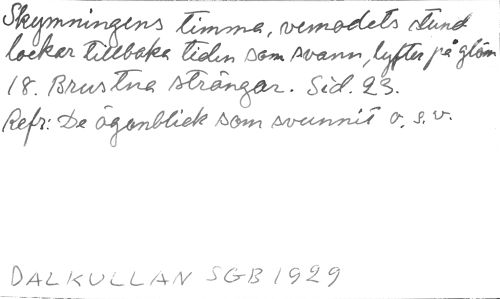 Skymningens timma, vemodets stund
lockar tillbaka tiden som svann, lyfter på glöm
18. Brustna strängar. Sid. 23.
Refr: De ögonblick som svunnit o. s. v.
DALKULLAN SGB 1929